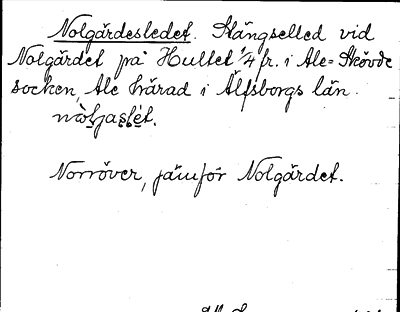 Nolgärdesledet. Stängselled vid
Nolgärdet på Hultet 1/4 fr. i Ale-Skövde
socken, Ale härad i Älfsborgs län.
Norröver, jämför Nolgärdet.